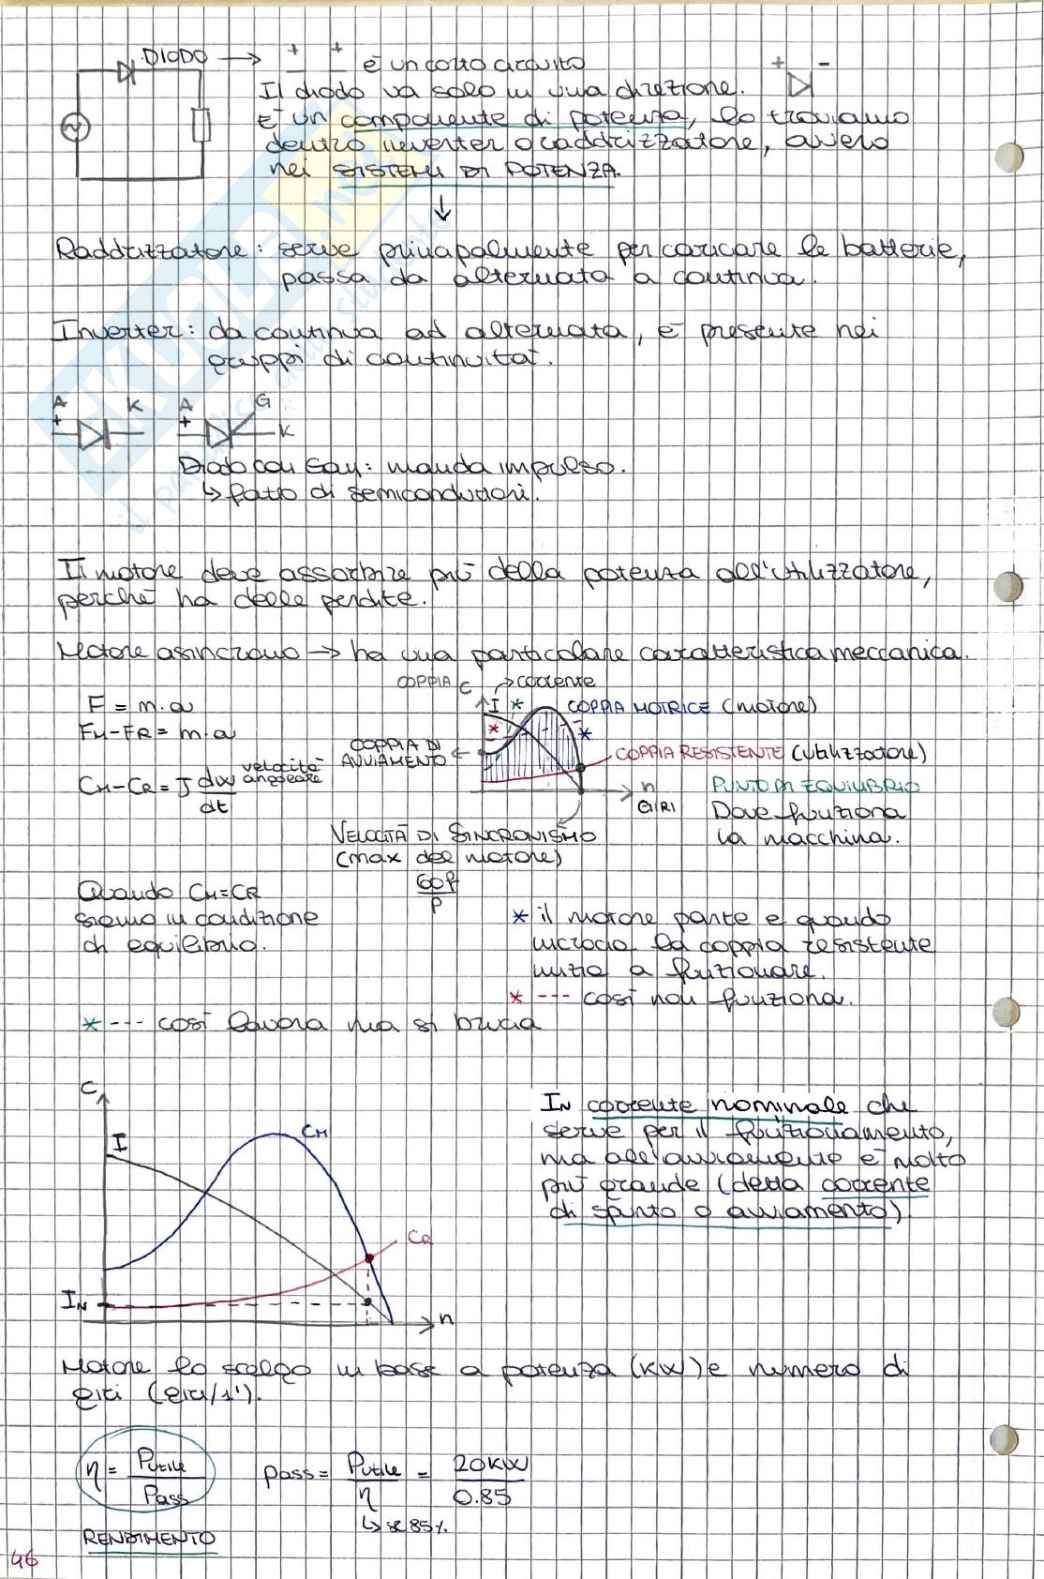 DIODO → + + è un corto circuito
+ -
Il diodo va solo in una direzione.
È un componente di potenza, lo troviamo
dentro inverter o raddrizzatore, ovvero
nei SISTEMI DI POTENZA.
Raddrizzatore: serve principalmente per caricare le batterie,
passa da alternata a continua.
Inverter: da continua ad alternata, è presente nei
gruppi di continuità.
A K A G
+ + K
Diodo con Gay: manda impulso.
↳ fatto di semiconduttori.
Il motore deve assorbire più della potenza all'utilizzatore,
perché ha delle perdite.
Motore asincrono → ha una particolare caratteristica meccanica.
COPPIA C → corrente
F = m·a
I * COPPIA MOTRICE (motore)
FM-FR = m·a
* *
COPPIA DI AVVIAMENTO
COPPIA RESISTENTE (utilizzatore)
CM-CR = J dω/dt velocità angolare
n GIRI
PUNTO DI EQUILIBRIO
Dove funziona
la macchina.
VELOCITÀ DI SINCRONISMO
(max del motore)
60f/P
Quando CM=CR
siamo in condizione
di equilibrio.
* il motore parte e quando
incrocia la coppia resistente
inizia a funzionare.
* --- così non funziona.
* --- così lavora ma si brucia
C
I
CM
CR
IN
n
IN corrente nominale che
serve per il funzionamento,
ma all'avviamento è molto
più grande (detta corrente
di spunto o avviamento)
Motore lo scelgo in base a potenza (KW) e numero di
giri (giri/1').
η = Putile/Pass
Pass = Putile/η = 20KW/0.85
↳ se 85%
RENDIMENTO
46